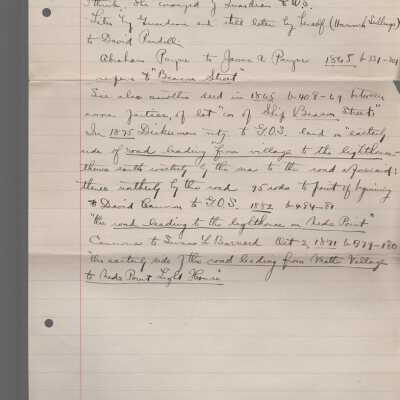 think. She changed of Guardian
Later by Guardian and still later by herself (Hannah
to David
Abraham Payne to James A Payne 1865 b
refers to "Beacon Street"
See also another deed in 1865 6-408-69 between
same parties, of lot "cor of Ship Beacon Streets"
In 1875 Dickerman to G.O.S. land on "easterly
side of road leading from village to the lighthouse
thence south westerly by the to the road aforesaid:
thence northerly by the road 95 rods to point of beginning
David Cannon to G.O.S. 1882 6-484-81
"the road leading to the lighthouse on Neds Point"
Cannon to L Barnard Oct 2, 1891 6-
"the easterly side of the road leading from Matt Village
to Neds Point Light House"